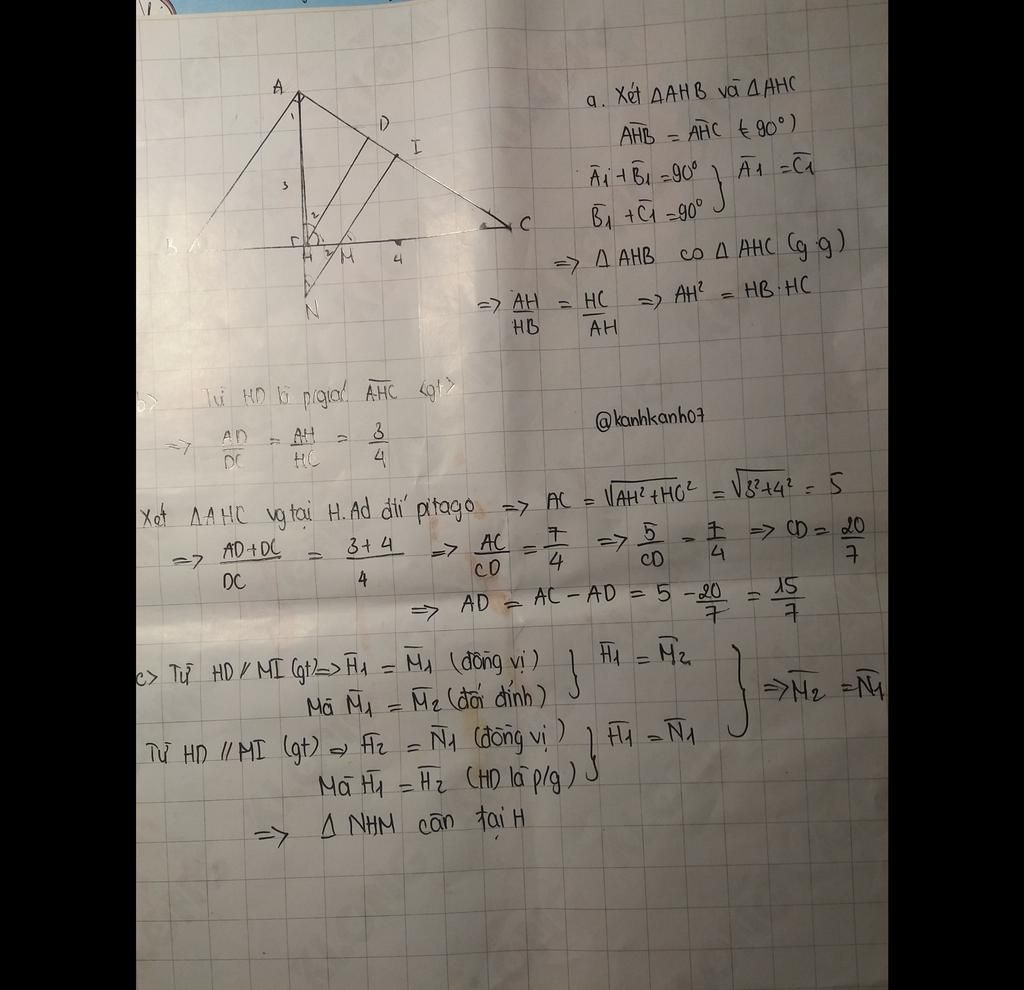 A
D
I
1
3
2
B
C
H
2
M
4
N
a. Xét ΔAHB và ΔAHC
AHB = AHC (=90°)
A1 + B1 = 90° } A1 = C1
B1 + C1 = 90°
=> ΔAHB ∽ ΔAHC (g.g)
=> AH/HB = HC/AH => AH² = HB.HC
b> Từ HD là p/giác AHC <gt>
=> AD/DC = AH/HC = 3/4
@kanhkanh07
Xét ΔAHC vg tại H. Ad đlí pitago => AC = √AH²+HC² = √3²+4² = 5
=> AD+DC/DC = 3+4/4 => AC/CD = 7/4 => 5/CD = 7/4 => CD = 20/7
=> AD = AC - AD = 5 - 20/7 = 15/7
c> Từ HD // MI (gt) => H1 = M1 (đồng vị) } H1 = M2 } => M2 = N1
Mà M1 = M2 (đối đỉnh)
Từ HD // MI (gt) => H2 = N1 (đồng vị) } H1 = N1
Mà H1 = H2 (HD là p/g)
=> Δ NHM cân tại H